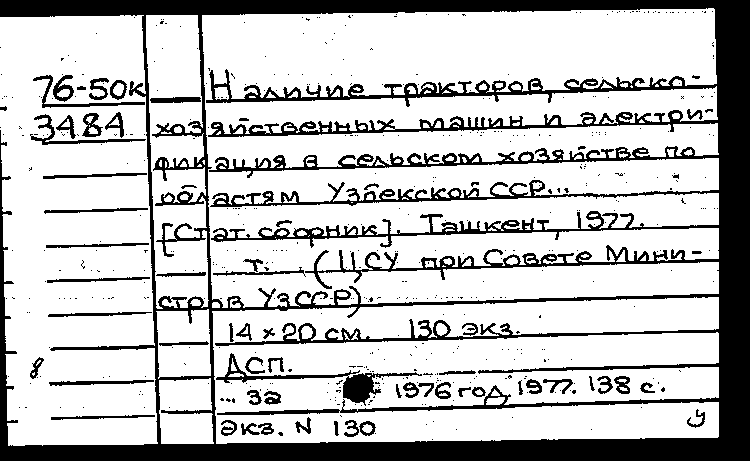 76-50к Наличие тракторов, сельско-
3484 хозяйственных машин и электри-
фикация в сельском хозяйстве по
областям Узбекской ССР...
[Стат. сборник]. Ташкент, 1977.
т. (ЦСУ при Совете Мини-
стров УзССР).
14 × 20 см. 130 экз.
8 ДСП.
... за 1976 год, 1977. 138 с.
Экз. N 130 у